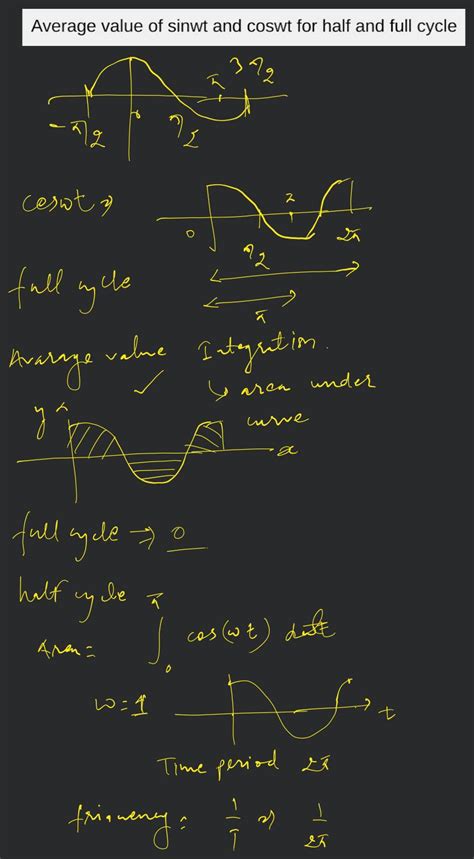 Average value of sinwt and coswt for half and full cycle
π 3π/2
-π/2 0 π/2
coswt ⇒
0 π/2 π 2π
full cycle
π
Avarage value Integration.
↳ area under
curve
y
x
full cycle ⇒ 0
half cycle
Area = ∫₀^π cos(wt) dt
w = 1
t
Time period 2π
friquency = 1/T ⇒ 1/2π